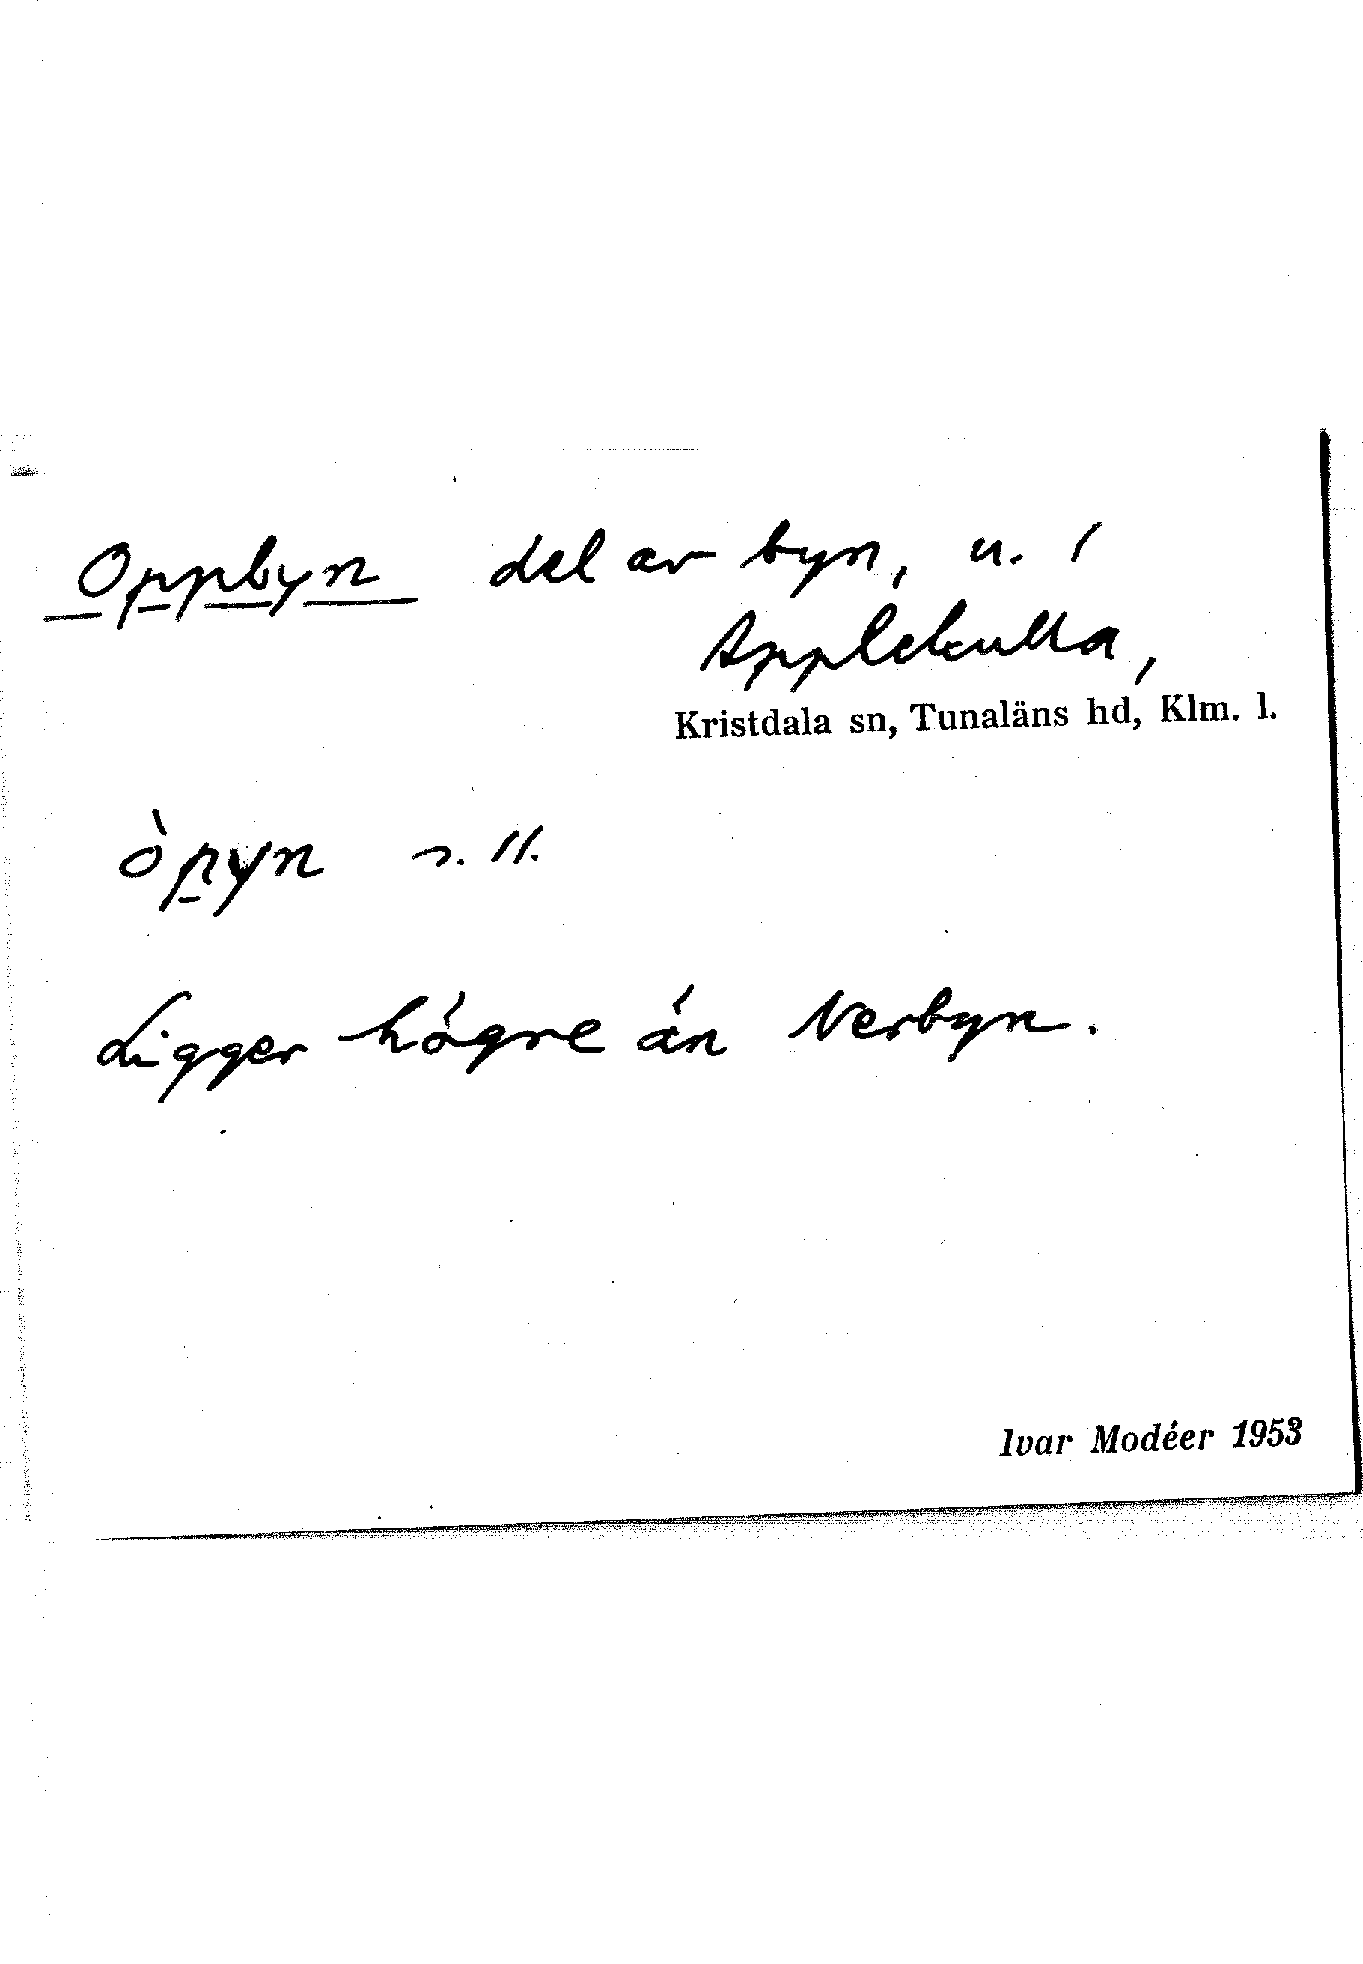 Oppbyn del av byn, u. i
Applekulla,
Kristdala sn, Tunaläns hd, Klm. l.
òpyn s. 11.
Ligger högre än Nerbyn.
Ivar Modéer 1953